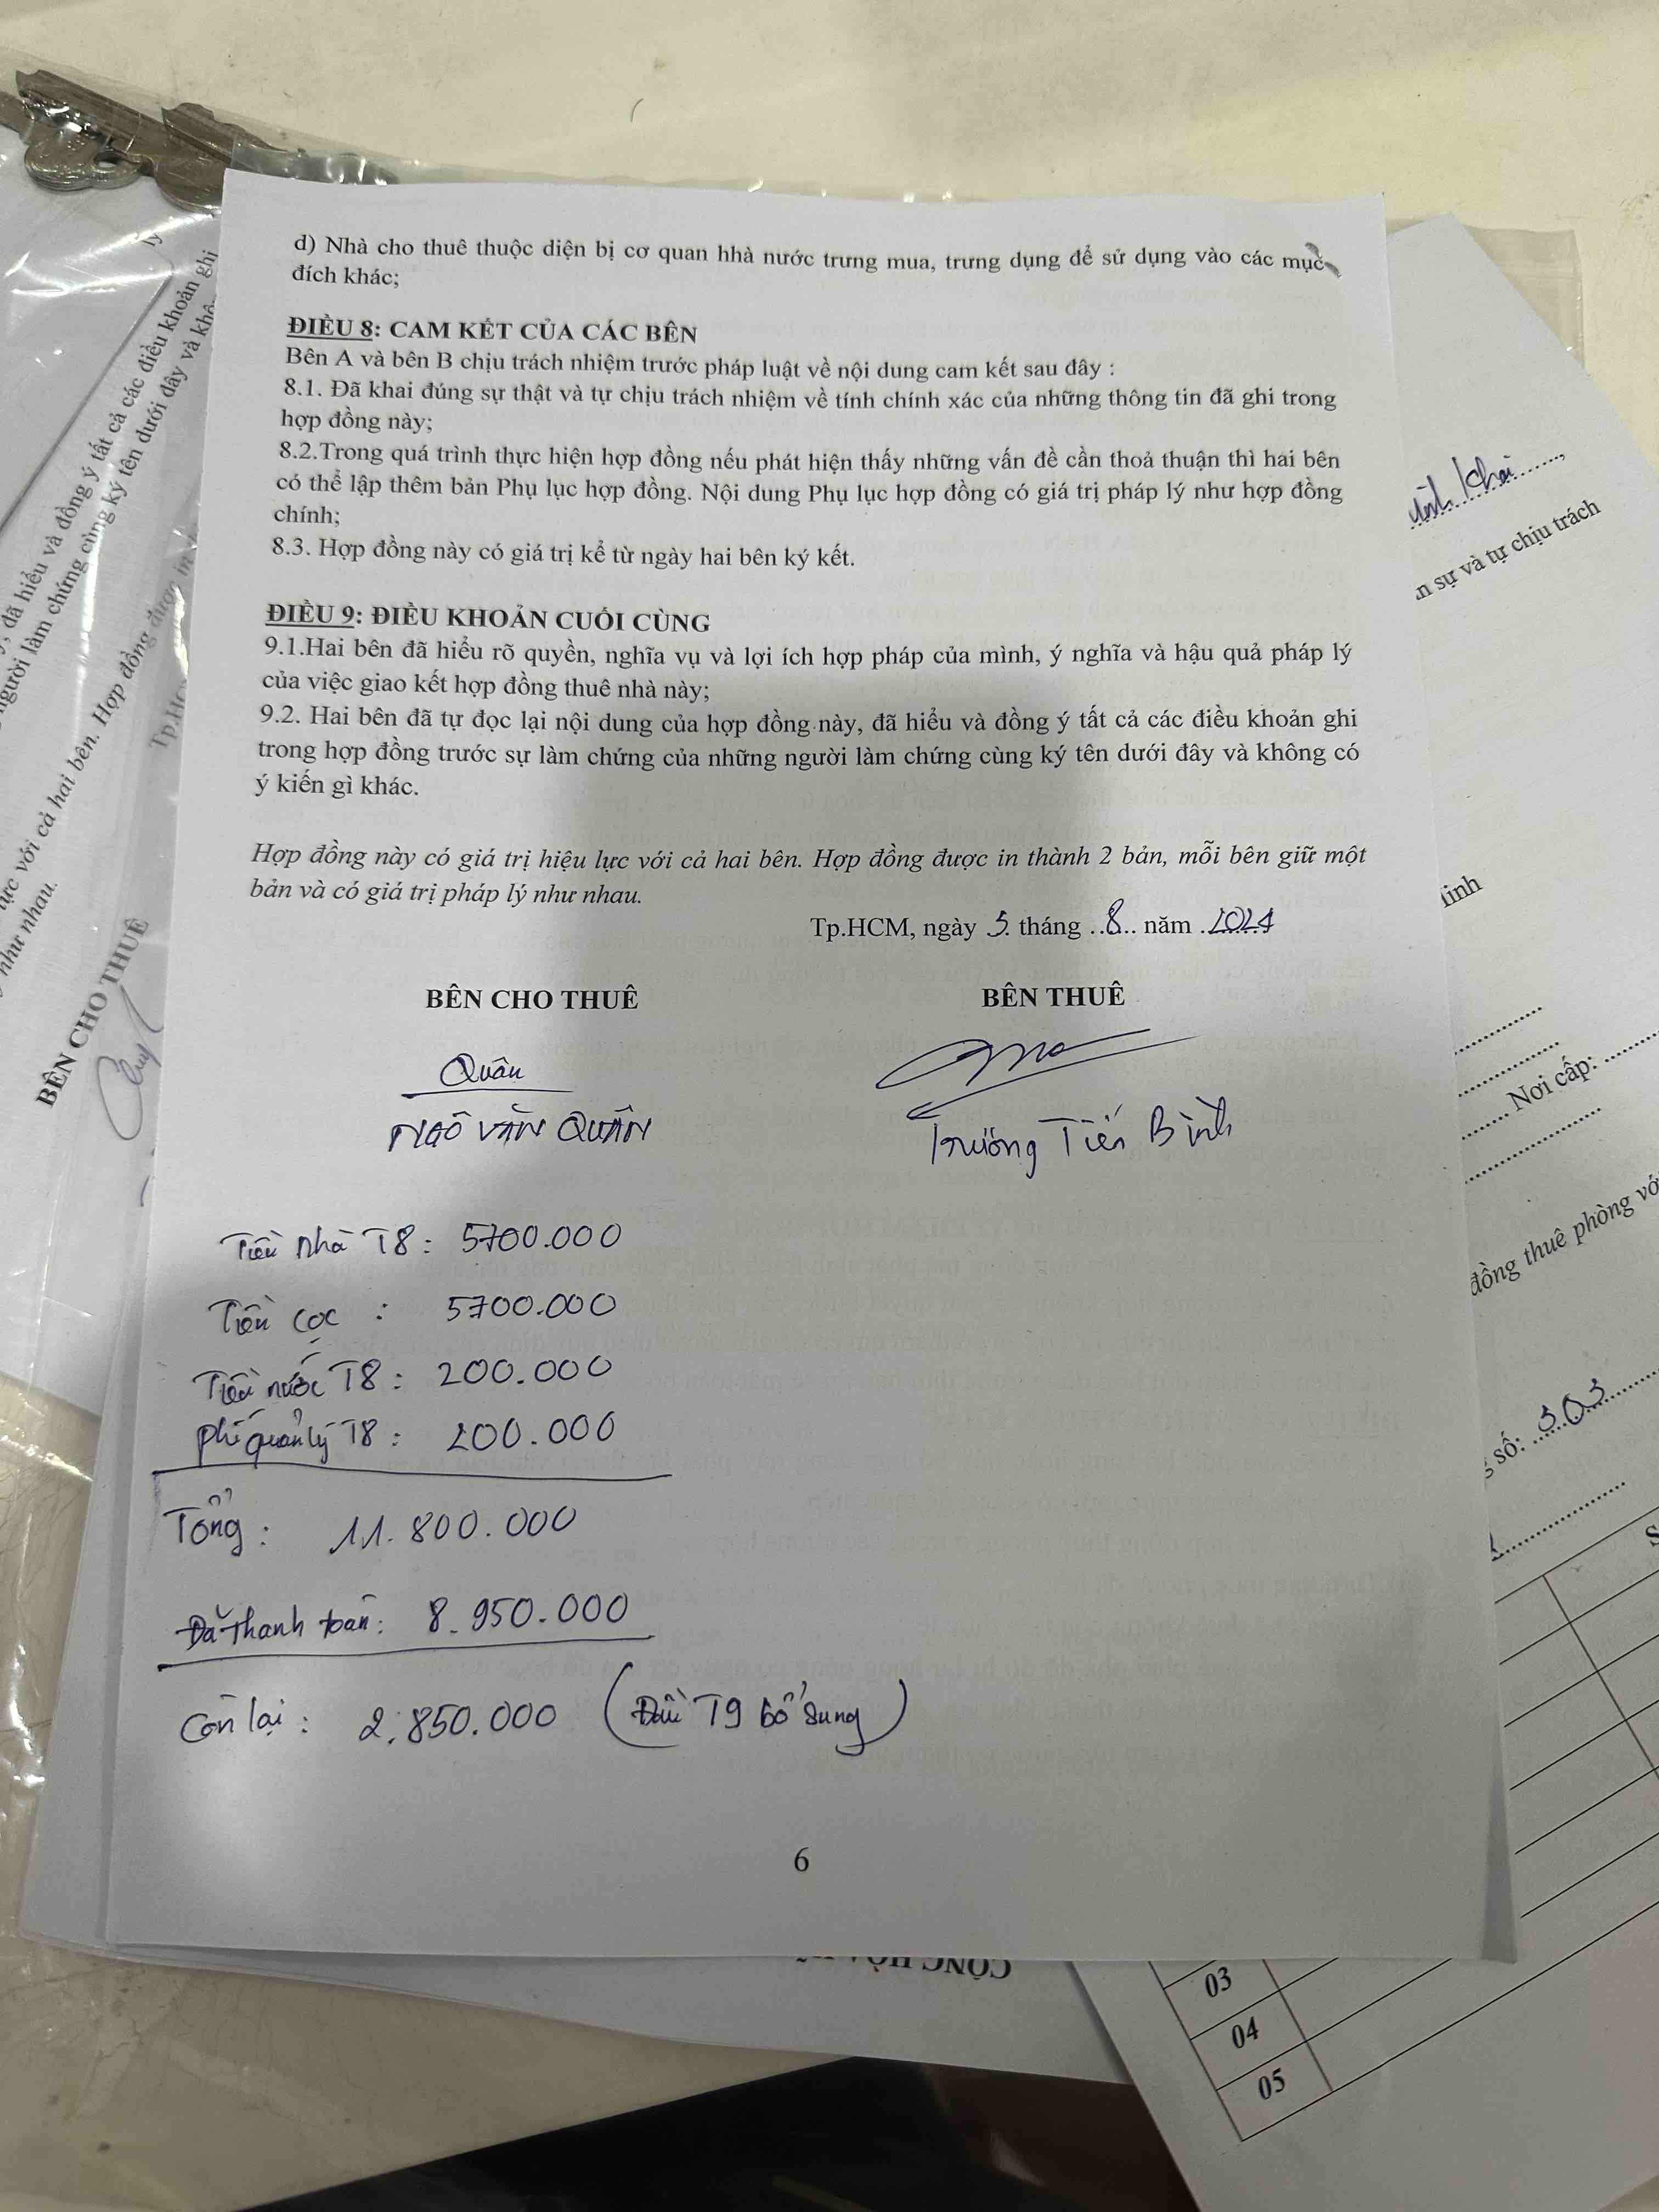 d) Nhà cho thuê thuộc diện bị cơ quan hhà nước trưng mua, trưng dụng để sử dụng vào các mục
đích khác;
ĐIỀU 8: CAM KẾT CỦA CÁC BÊN
Bên A và bên B chịu trách nhiệm trước pháp luật về nội dung cam kết sau đây :
8.1. Đã khai đúng sự thật và tự chịu trách nhiệm về tính chính xác của những thông tin đã ghi trong
hợp đồng này;
8.2.Trong quá trình thực hiện hợp đồng nếu phát hiện thấy những vấn đề cần thoả thuận thì hai bên
có thể lập thêm bản Phụ lục hợp đồng. Nội dung Phụ lục hợp đồng có giá trị pháp lý như hợp đồng
chính;
8.3. Hợp đồng này có giá trị kể từ ngày hai bên ký kết.
ĐIỀU 9: ĐIỀU KHOẢN CUỐI CÙNG
9.1.Hai bên đã hiểu rõ quyền, nghĩa vụ và lợi ích hợp pháp của mình, ý nghĩa và hậu quả pháp lý
của việc giao kết hợp đồng thuê nhà này;
9.2. Hai bên đã tự đọc lại nội dung của hợp đồng này, đã hiểu và đồng ý tất cả các điều khoản ghi
trong hợp đồng trước sự làm chứng của những người làm chứng cùng ký tên dưới đây và không có
ý kiến gì khác.
Hợp đồng này có giá trị hiệu lực với cả hai bên. Hợp đồng được in thành 2 bản, mỗi bên giữ một
bản và có giá trị pháp lý như nhau.
Tp.HCM, ngày 5 tháng ..8.. năm .2024
BÊN CHO THUÊ BÊN THUÊ
Quân
NGÔ VĂN QUÂN
Trương Tiến Bình
Tiền nhà T8 : 5700.000
Tiền cọc : 5700.000
Tiền nước T8 : 200.000
phí quản lý T8 : 200.000
Tổng : 11.800.000
Đã thanh toán : 8.950.000
Còn lại : 2.850.000 (Đầu T9 bổ sung)
6
, đã hiểu và đồng ý tất cả các điều khoản ghi
người làm chứng cùng ký tên dưới đây và
với cả hai bên. Hợp đồng được in
như nhau.
BÊN CHO THUÊ
Khai
sự và tự chịu trách
Nơi cấp:
đồng thuê phòng
số: 303
CỘNG HÒA
03
04
05